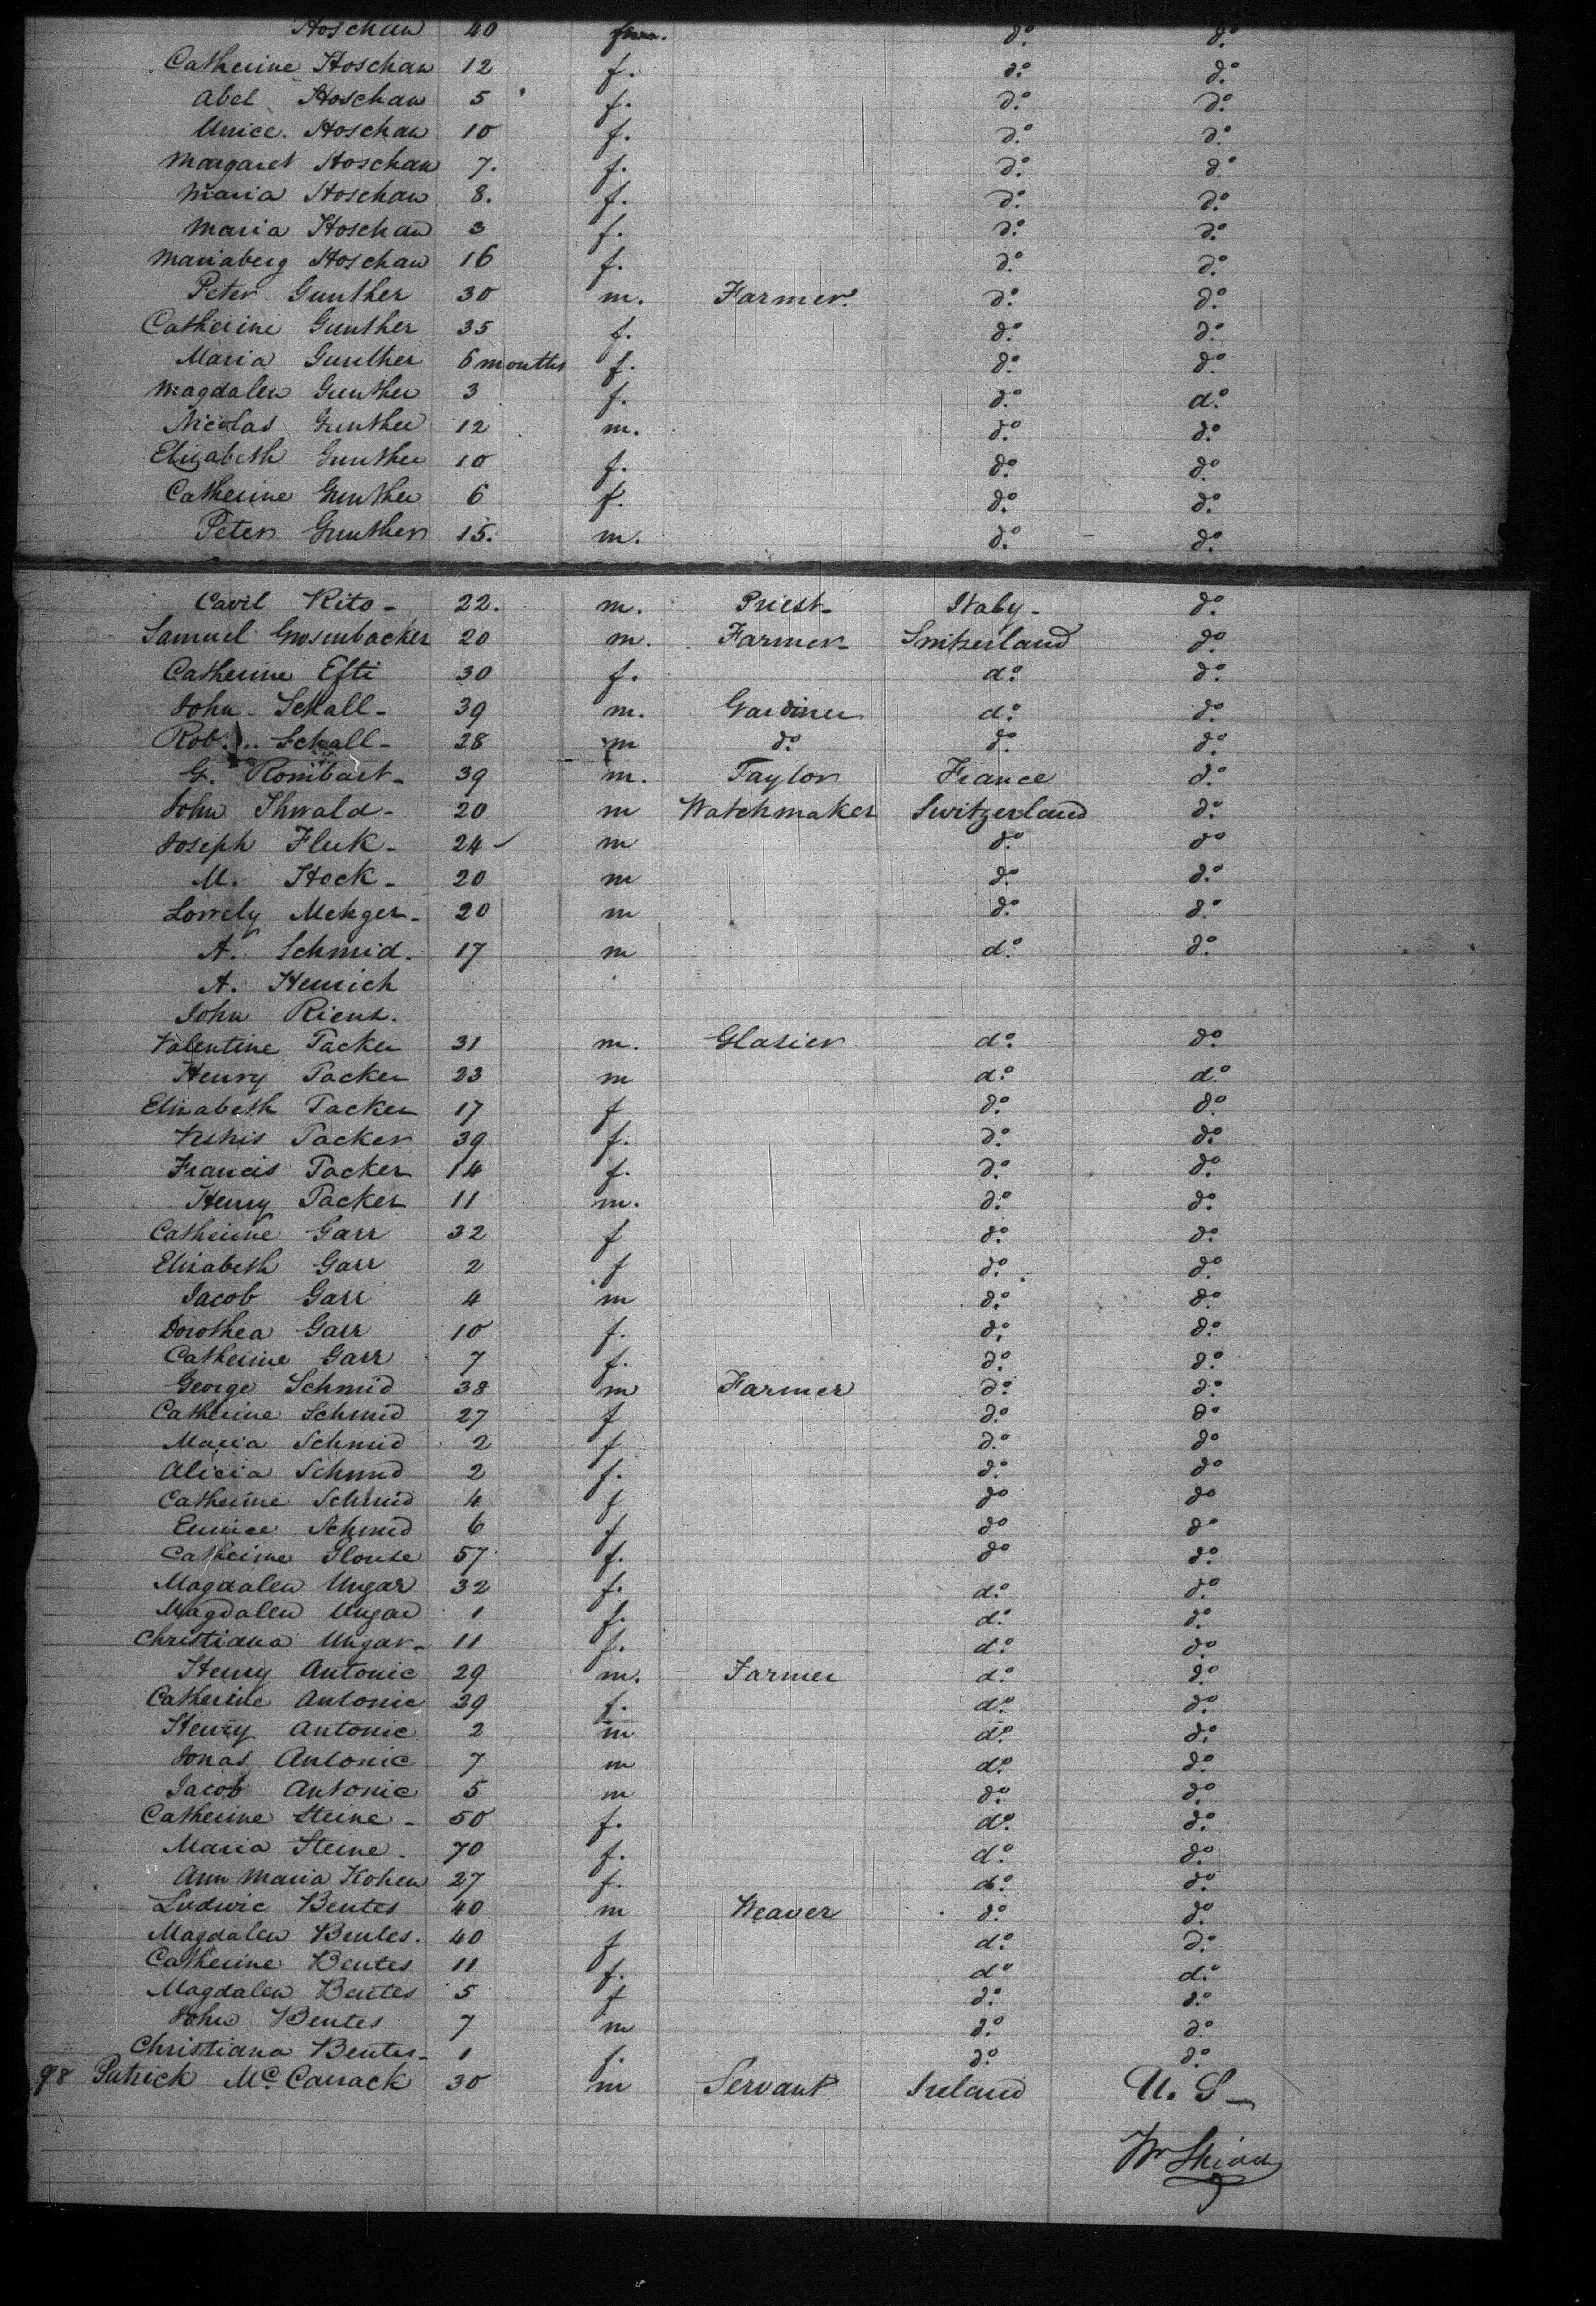 Hoschaw 40 d.o d.o
Catherine Hoschaw 12 f. d.o d.o
Abel Hoschaw 5 f. d.o d.o
Unice. Hoschaw 10 f. d.o d.o
Margaret Hoschaw 7. f. d.o d.o
Maria Hoschaw 8. f. d.o d.o
Maria Hoschaw 3 f. d.o d.o
Mariaberg Hoschaw 16 f. d.o d.o
Peter Gunther 30 m. Farmer. d.o d.o
Catherine Gunther 35 f. d.o d.o
Maria Gunther 6 months f. d.o d.o
Magdalen Gunther 3 f. d.o d.o
Nicolas Gunther 12 m. d.o d.o
Elizabeth Gunther 10 f. d.o d.o
Catherine Gunther 6 f. d.o d.o
Peter Gunther 15. m. d.o d.o
Cavil Kito - 22. m. Priest - Italy - d.o
Samuel Grosenbacker 20 m. Farmer - Switzerland d.o
Catherine Efti 30 f. d.o d.o
John - Schall - 39 m. Gardiner d.o d.o
Rob. Schall - 28 m d.o d.o d.o
G. Rombart - 39 m. Taylor France d.o
John Ihwald - 20 m Watchmaker Switzerland d.o
Joseph Fluk - 24 m d.o d.o
M. Hock - 20 m d.o d.o
Metzger - 20 m d.o d.o
A. Schmid. 17 m d.o d.o
A. Henrich
John Rienz.
Valentine Tacker 31 m. Glasier d.o d.o
Henry Tacker 23 m d.o d.o
Elizabeth Tacker 17 f d.o d.o
Tacker 39 f. d.o d.o
Francis Tacker 14 f. d.o d.o
Henry Tacker 11 m. d.o d.o
Catherine Garr 32 f d.o d.o
Elizabeth Garr 2 f d.o d.o
Jacob Garr 4 m d.o d.o
Dorothea Garr 10 f. d.o d.o
Catherine Garr 7 f. d.o d.o
George Schmid 38 m Farmer d.o d.o
Catherine Schmid 27 f d.o d.o
Maria Schmid 2 f d.o d.o
Alicia Schmid 2 f. d.o d.o
Catherine Schmid 4 f do do
Eunice Schmid 6 f do do
Catherine Glouse 57 f. do d.o
Magdalen Ungar 32 f. d.o d.o
Magdalen Ungar 1 f. d.o d.o
Christiana Ungar - 11 f. d.o d.o
Henry Antonie 29 m. Farmer d.o d.o
Catherine Antonie 39 f. d.o d.o
Henry Antonie 2 m d.o d.o
Jonas Antonie 7 m d.o d.o
Jacob Antonie 5 m d.o d.o
Catherine Steine - 50 f. d.o d.o
Maria Steine. 70 f. d.o d.o
Ann Maria Kohen 27 f. d.o d.o
Ludwic Bentes 40 m Weaver d.o d.o
Magdalen Bentes. 40 f d.o d.o
Catherine Bentes 11 f. d.o d.o
Magdalen Bentes 5 f d.o d.o
John Bentes 7 m d.o d.o
Christiana Bentes - 1 f. d.o d.o
98 Patrick McCarrack 30 m Servant Ireland U. S -
Wm